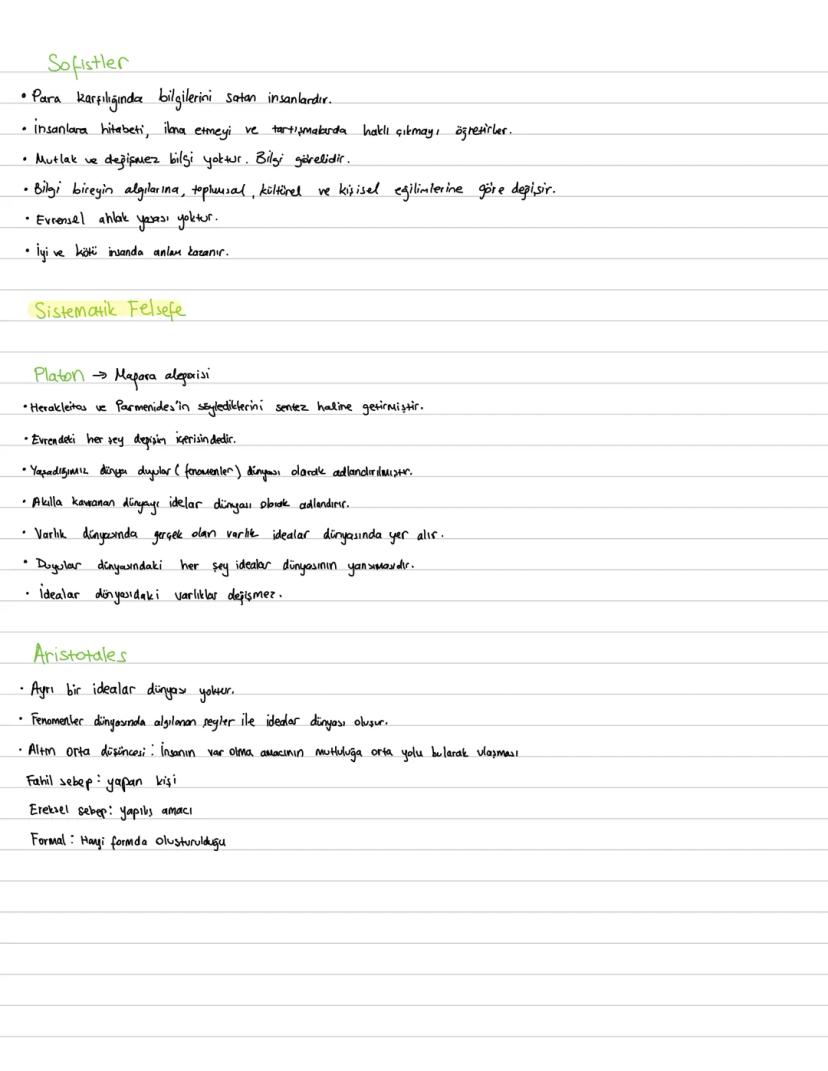 Sofistler
• Para karşılığında bilgilerini satan insanlardır.
• İnsanlara hitabeti, ikna etmeyi ve tartışmalarda haklı çıkmayı öğretirler.
• Mutlak ve değişmez bilgi yoktur. Bilgi görelidir.
• Bilgi bireyin algılarına, toplumsal, kültürel ve kişisel eğilimlerine göre değişir.
• Evrensel ahlak yasası yoktur.
• İyi ve kötü insanda anlam kazanır.
Sistematik Felsefe
Platon → Mağara alegorisi
• Herakleitos ve Parmenides'in söylediklerini sentez haline getirmiştir.
• Evrendeki her şey değişim içerisindedir.
• Yaşadığımız dünya duyular (fenomenler) dünyası olarak adlandırılmıştır.
• Akılla kavranan dünyayı idelar dünyası olarak adlandırır.
• Varlık dünyasında gerçek olan varlık idealar dünyasında yer alır.
• Duyular dünyasındaki her şey idealar dünyasının yansımasıdır.
• İdealar dünyasıdaki varlıklar değişmez.
Aristotales
• Ayrı bir idealar dünyası yoktur.
• Fenomenler dünyasında algılanan şeyler ile idealar dünyası oluşur.
• Altın orta düşüncesi: İnsanın var olma amacının mutluluğa orta yolu bularak ulaşması
Fahil sebep: yapan kişi
Ereksel sebep: yapılış amacı
Formal: Hangi formda oluşturulduğu